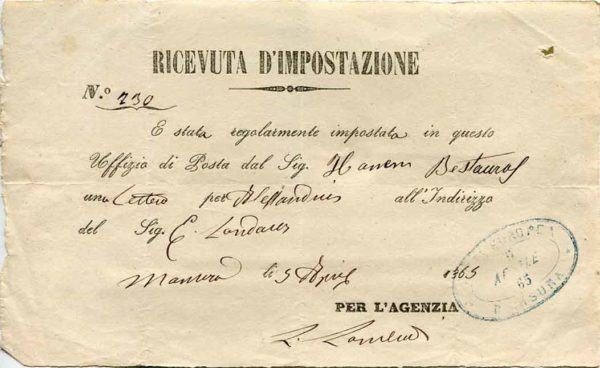 RICEVUTA D'IMPOSTAZIONE
N.º 230
E stata regolarmente impostata in questo
Uffizio di Posta dal Sig. Hanem Bestauros
una Lettera per Alessandria all'Indirizzo
del Sig. C. Landauer
Mansura li 5 Aprile 1865
PER L'AGENZIA
APRILE
65